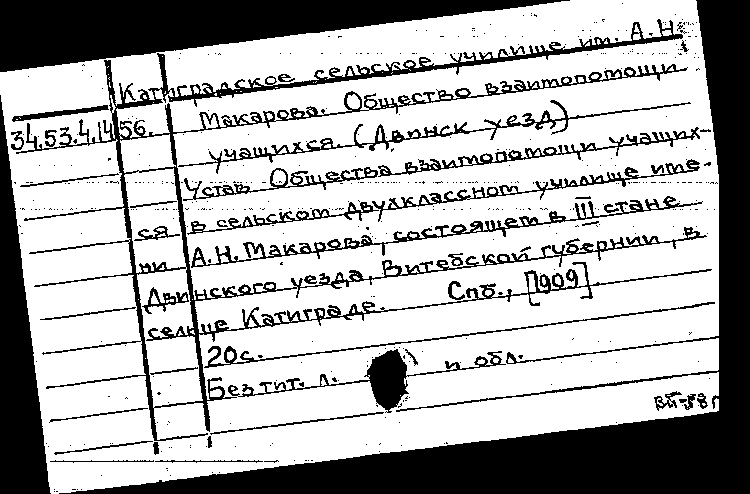 Катиградское сельское училище им. А.Н.
Макарова. Общество взаимопомощи
34.53.4.1456.
учащихся. (Двинск уезд)
Устав Общества взаимопомощи учащих-
ся в сельском двухклассном училище име-
ни А.Н. Макарова, состоящем в III стане
Двинского уезда, Витебской губернии, в
сельце Катиграде. Спб., [1909].
20с.
Без тит. л. и обл.